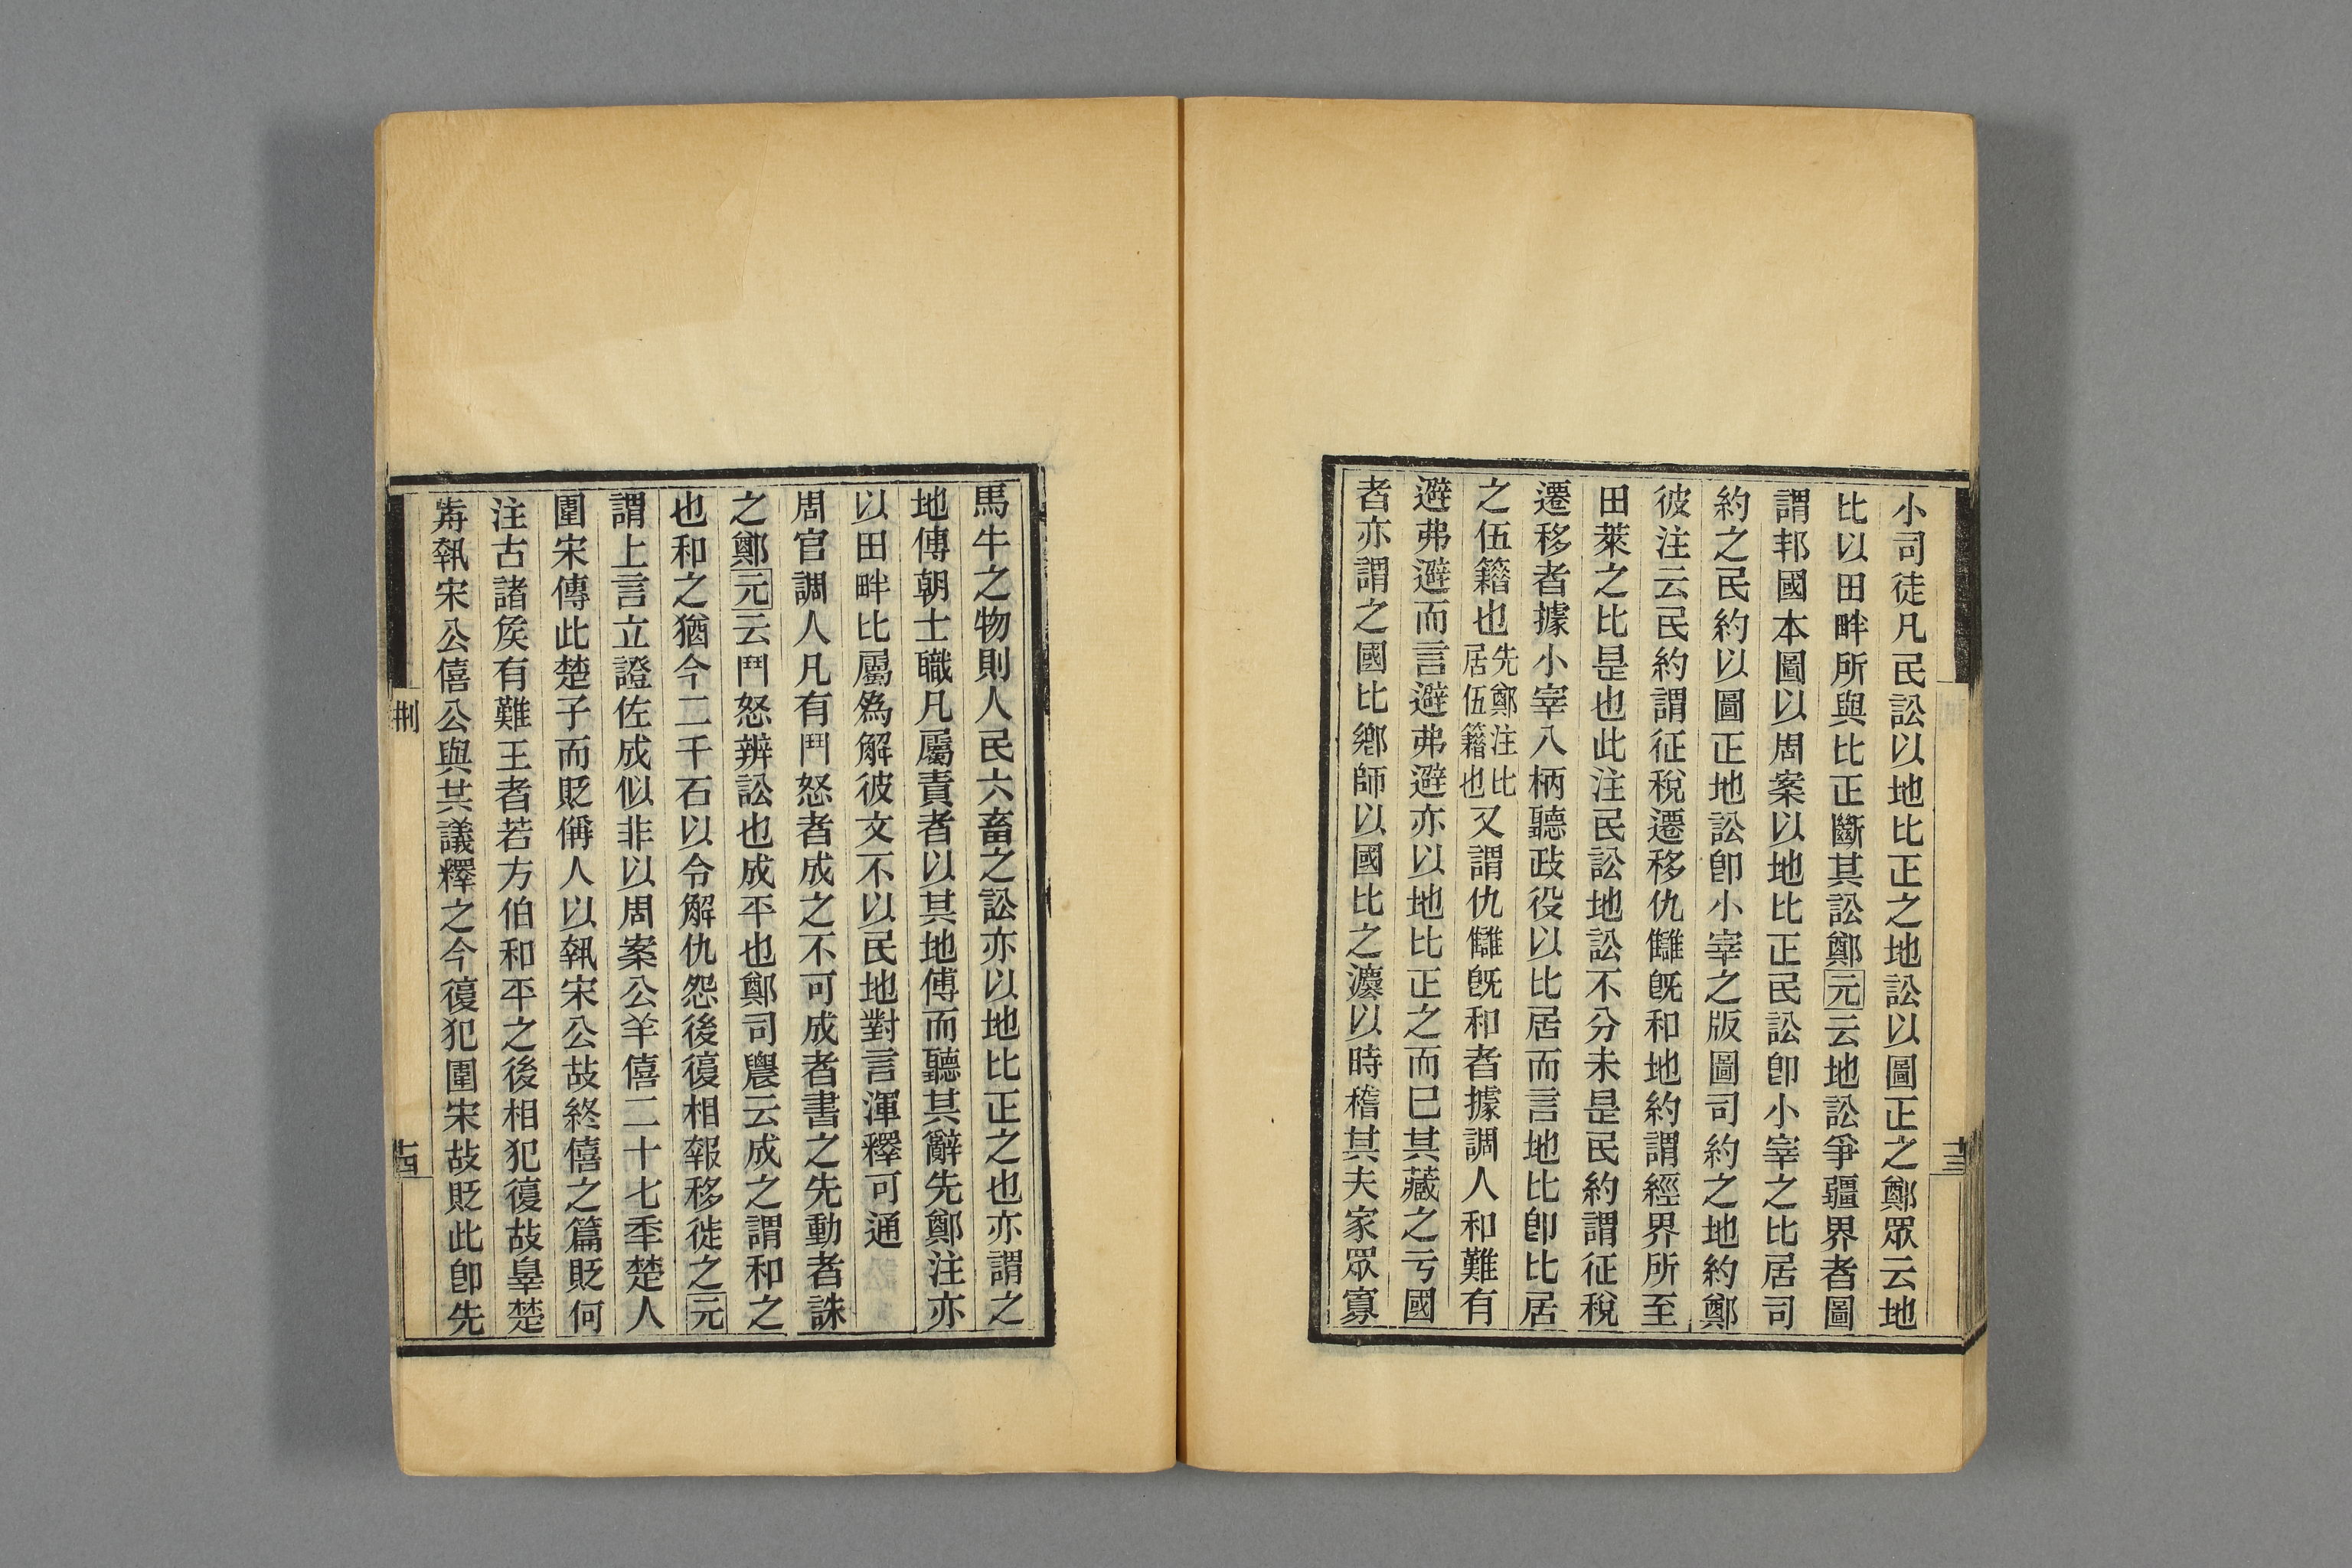 小司徒凡民訟以地比正之地訟以圖正之鄭眾云地
比以田畔所與比正斷其訟鄭元云地訟爭疆界者圖
謂邦國本圖以周案以地比正民訟卽小宰之比居司
約之民約以圖正地訟卽小宰之版圖司約之地約鄭
彼注云民約謂征稅遷移仇讎旣和地約謂經界所至
田萊之比是也此注民訟地訟不分未是民約謂征稅
遷移者據小宰八柄聽政役以比居而言地比卽比居
之伍籍也先鄭注比居伍籍也又謂仇讎旣和者據調人和難有
避弗避而言避弗避亦以地比正之而已其藏之亏國
者亦謂之國比鄉師以國比之灋以時稽其夫家眾寡
十三
馬牛之物則人民六畜之訟亦以地比正之也亦謂之
地傅朝士職凡屬責者以其地傅而聽其辭先鄭注亦
以田畔比屬爲解彼文不以民地對言渾釋可通
周官調人凡有鬥怒者成之不可成者書之先動者誅
之鄭元云鬥怒辨訟也成平也鄭司農云成之謂和之
也和之猶今二千石以令解仇怨後復相報移徙之元
謂上言立證佐成似非以周案公羊僖二十七秊楚人
圍宋傳此楚子而貶偁人以執宋公故終僖之篇貶何
注古諸矦有難王者若方伯和平之後相犯復故辠楚
歬執宋公僖公與其議釋之今復犯圍宋故貶此卽先
荆
十四